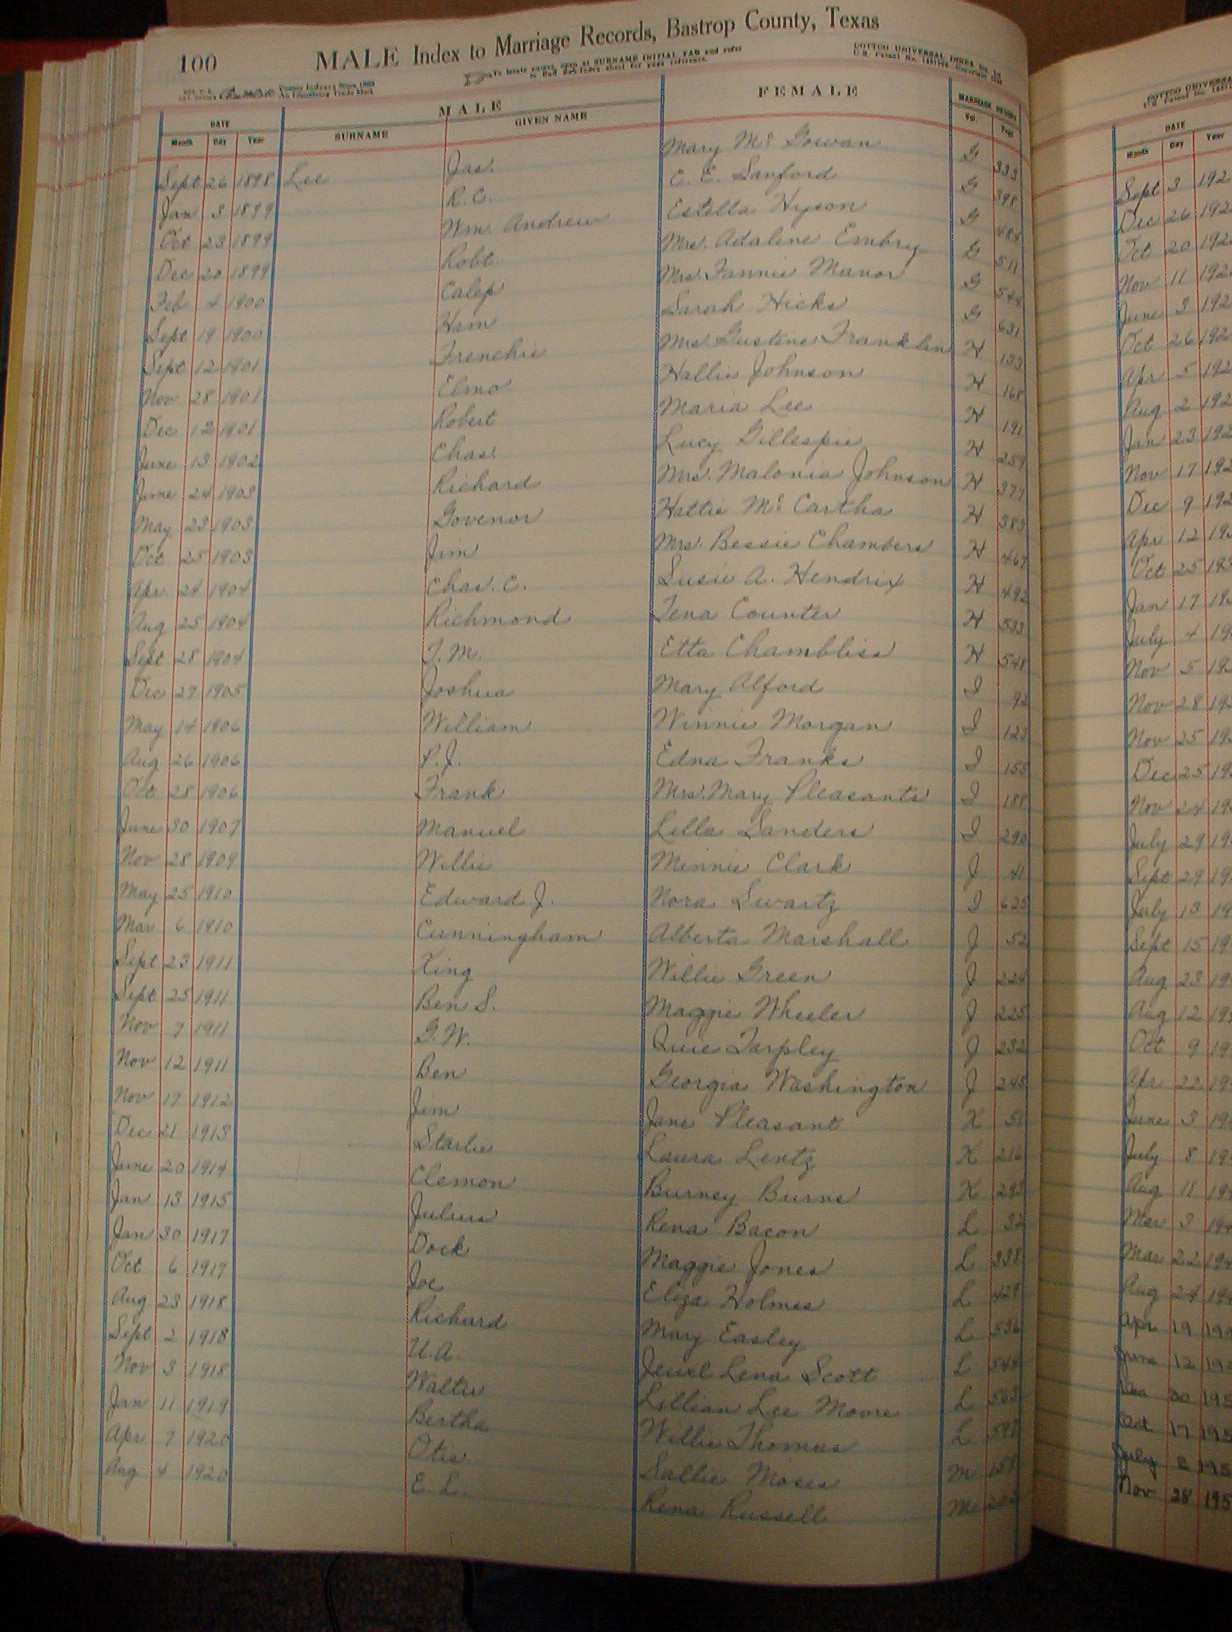 100 MALE Index to Marriage Records, Bastrop County, Texas
To locate names, open at SURNAME INITIAL TAB and refer
to Sub-Index sheet for page reference.
County Indexes Since 1888
An Identifying Trade Mark
COTTCO UNIVERSAL INDEX
DATE MALE FEMALE MARRIAGE RECORD
Month Day Year SURNAME GIVEN NAME Vol. Page
Sept 26 1898 Lee Jas. Mary Mc Gowan G 333
Jan 3 1899 R.C. E. E. Sanford G 398
Oct 23 1899 Wm. Andrew Estella Hyson G 484
Dec 20 1899 Robt Mrs. Adaline Embry G 511
Feb 4 1900 Calep Mrs Fannie Manor G 544
Sept 19 1900 Ham Sarah Hicks G 631
Sept 12 1901 Frenchie Mrs. Gustine Franklin H 133
Nov 28 1901 Elmo Hallie Johnson H 168
Dec 12 1901 Robert Maria Lee H 191
June 13 1902 Chas. Lucy Gillespie H 259
June 24 1903 Richard Mrs. Malonia Johnson H 377
May 23 1903 Govenor Hattie Mc Cartha H 383
Oct 25 1903 Jim Mrs. Bessie Chambers H 467
Apr 24 1904 Chas. C. Susie A. Hendrix H 492
Aug 25 1904 Richmond Tena Counter H 533
Sept 28 1904 T.M. Etta Chambliss H 548
Dec 27 1905 Joshua Mary Alford I 92
May 14 1906 William Winnie Morgan I 123
Aug 26 1906 P.J. Edna Franks I 155
Oct 28 1906 Frank Mrs. Mary Pleasants I 188
June 30 1907 Manuel Lella Sanders I 290
Nov 28 1909 Willie Minnie Clark J 41
May 25 1910 Edward J. Nora Swartz I 625
Mar 6 1910 Cunningham Alberta Marshall J 52
Sept 23 1911 King Willie Green J 224
Sept 25 1911 Ben S. Maggie Wheeler J 225
Nov 7 1911 G.W. Quie Tarpley J 232
Nov 12 1911 Ben Georgia Washington J 245
Nov 17 1912 Jim Jane Pleasant K 51
Dec 21 1913 Starlie Laura Lentz K 216
June 20 1914 Clemon Burney Burns K 293
Jan 13 1915 Julius Rena Bacon L 32
Jan 30 1917 Dock Maggie Jones L 338
Oct 6 1917 Joe Eliza Holmes L 429
Aug 23 1918 Richard Mary Easley L 536
Sept 2 1918 U.A. Jewel Lena Scott L 544
Nov 3 1918 Walter Lillian Lee Moore L 563
Jan 11 1919 Bertha Willie Thomas L 591
Apr 7 1920 Otis Sallie Moses M 159
Aug 4 1920 E.L. Rena Russell M 202
COTTCO UNIVERSA
DATE
Month Day Year
Sept 3 192
Dec 26 192
Oct 20 192
Nov 11 192
June 3 192
Oct 26 192
Apr 5 192
Aug 2 192
Jan 23 192
Nov 17 192
Dec 9 192
Apr 12 19
Oct 25 193
Jan 17 19
July 4 19
Nov 5 19
Nov 28 19
Nov 25 19
Dec 25 19
Nov 24 19
July 29 19
Sept 29 19
July 13 19
Sept 15 19
Aug 23 19
Aug 12 19
Oct 9 19
Apr 22 19
June 3 19
July 8 19
Aug 11 19
Mar 3 194
Mar 22 194
Aug 24 194
Apr 19 19
June 12 19
20 195
Oct 17 195
July 2 195
Nov 28 195